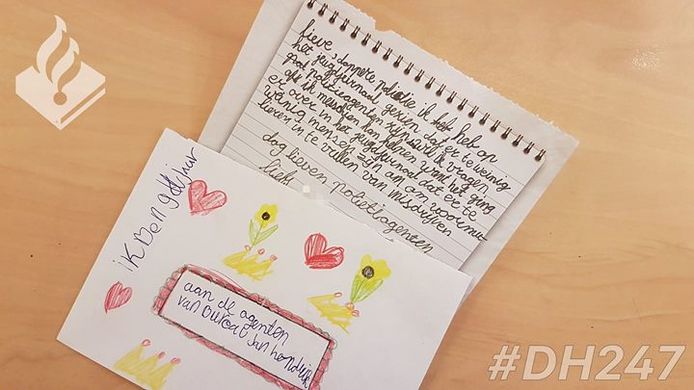 lieve, dappere polietie ik het heb op
het jeugdjurnaal gezien dat er te weinig
politieagenten zijn wil ik vragen
ofs ik misschien kan helpen want het ging
er over in het jeugdjurnaal dat er te
wijnig mensen zijn am om voormu-
lieren in te vullen van misdrijven
dag lieven polietieagenten
liefs
ik Ben 9
aan de agenten
van Jan hendrik
#DH247